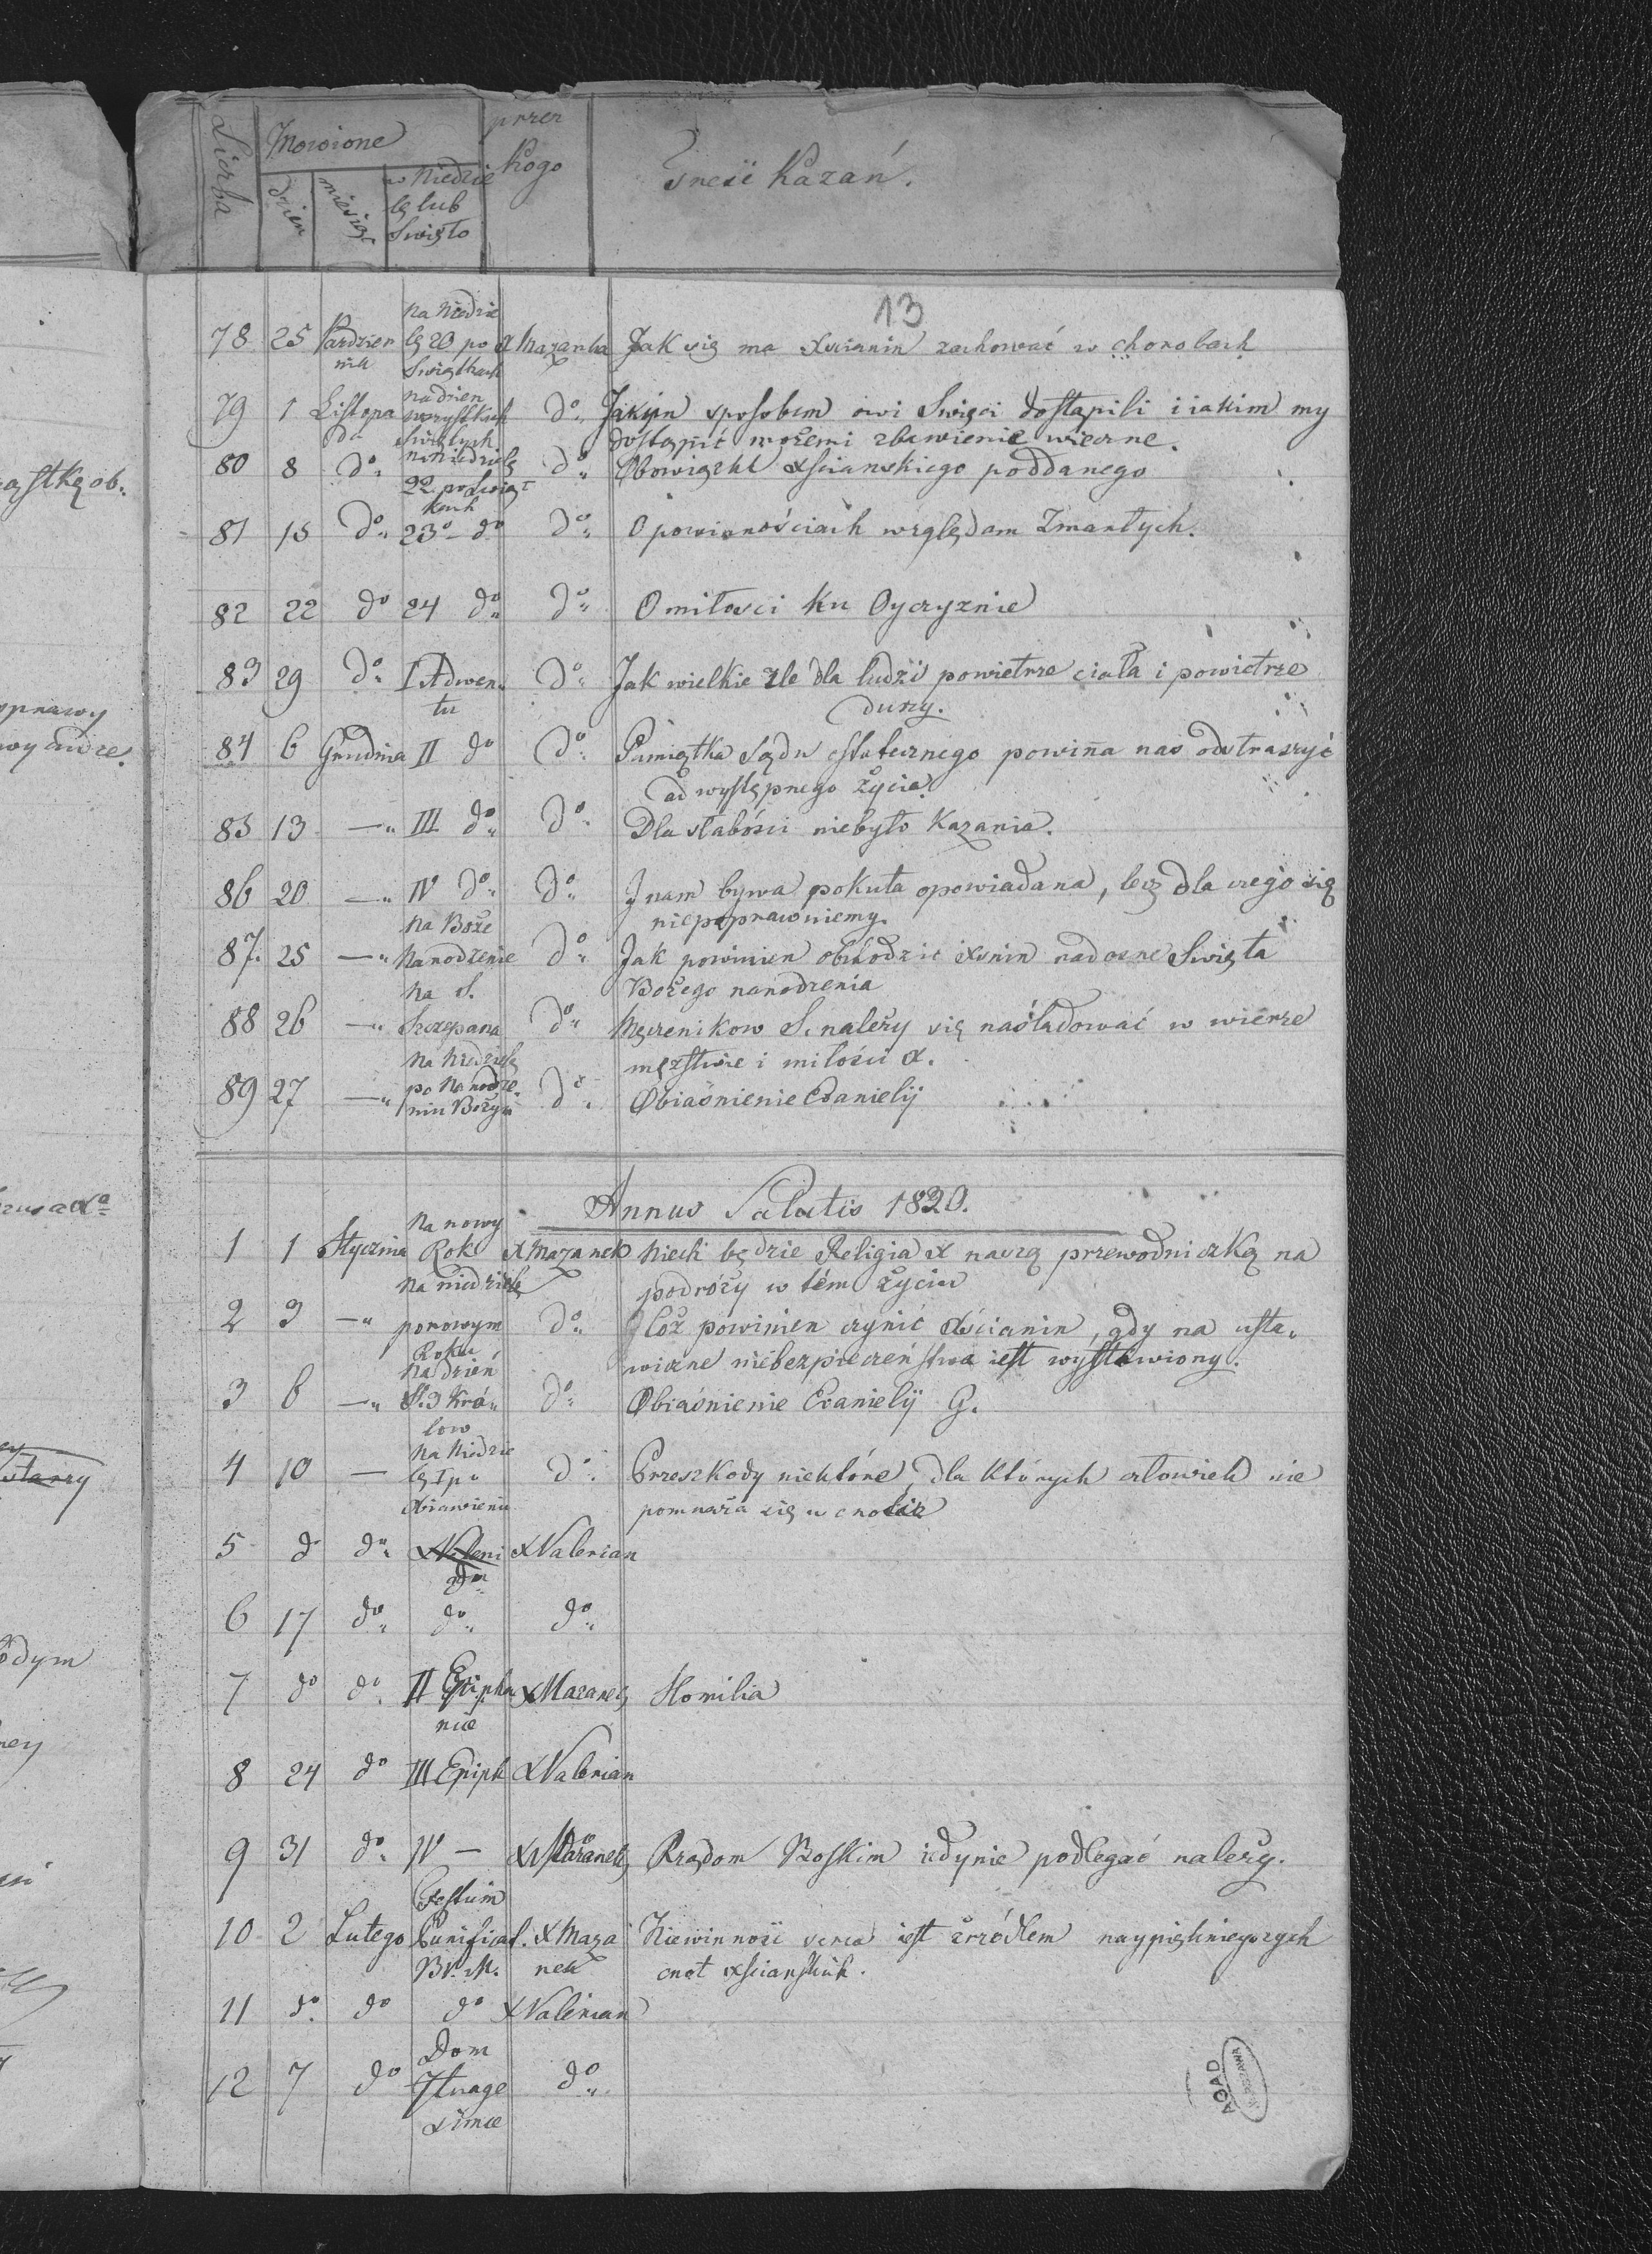 Liczba
Mowione
dzien
miesiąc
w Niedzie
lę lub
Swięto
przez
kogo
Treść Kazań.
13
78 25 Pazdzier na Niedzie
nik lę 20 po X Mazanka Jak się ma Xscianin zachować w chorobach
Swiątkach
79 1 Listopa na dzien
da wszystkich do Jakim sposobem owi Swięci dostąpili i iakim my
Swiętych dostąpić możemi zbawienie wieczne.
80 8 do na niedzielę do Obowiązki Xscianskiego poddanego
22 po Swiąt
kach
81 15 do 23o do do O powinnościach względam Zmarłych.
82 22 do 24 do do O miłosci ku Oyczyznie
83 29 do I Adwen do Jak wielkie zle dla ludzi powietrze ciała i powietrze
tu duszy.
84 6 Grudnia II do do Pamiątka Sądu ostatecznego powinna nas odstraszyć
od występnego życia.
85 13 — III do do Dla słabości niebyło Kazania.
86 20 — IV do do I nam bywa pokuta opowiadana, lecz dla czego się
niepoprawniemy.
87. 25 — Na Boże
Narodzenie do Jak powinien obchodzić xsnin radosne Swięta
Bożego narodzenia
88 26 — Na S.
Szczepana do Męczenikow S. należy się naśladować w wierze
męzstwie i miłości X.
89 27 — Na Niedzielę
po Narodze
niu Bożym do Obiaśnienie Ewanielij
Annus Salutis 1830.
1 1 Stycznia Na nowy
Rok X Mazanek Niech będzie Religia X naszą przewodniczką na
podróży w tém życiu
2 3 — Na niedzielę
po nowym
Roku do Cóż powinien czynić Xścianin, gdy na usta„
wiczne niebezpieczeństwa iest wystawiony.
3 6 — Na dzień
S. 3 Kró„
low do Obiaśnienie Ewanielij G.
4 10 — Na Niedzie
lę I po
obiawieniu do Przeszkody niektóre, dla których człowiek nie
pomnaża się w cnotie
5 do do do X Valerian
6 17 do do do
7 do do II Epipha
niæ X Mazanek Homilia
8 24 do III Epiph X Valerian
9 31 do IV — X Mazanek Rządom Boskim iedynie podlegać należy.
10 2 Lutego Festum
Purificat.
B.V.M. X Maza
nek Niewinność serca iest zrzódłem naypięknieyszych
cnot Xscianskich.
11 do do do X Valerian
12 7 do Dom
Stuage
simæ do
AGAD
WARSZAWA